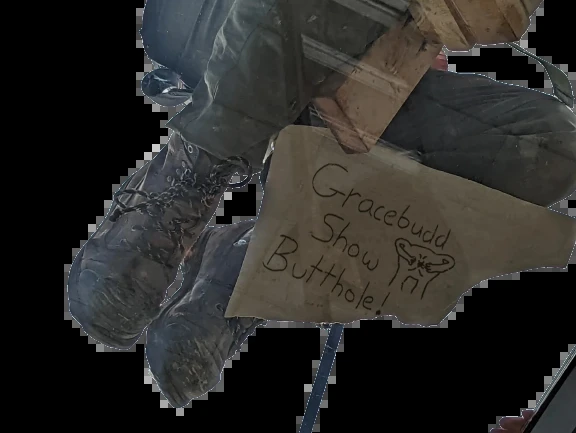 Gracebudd
Show
Butthole!